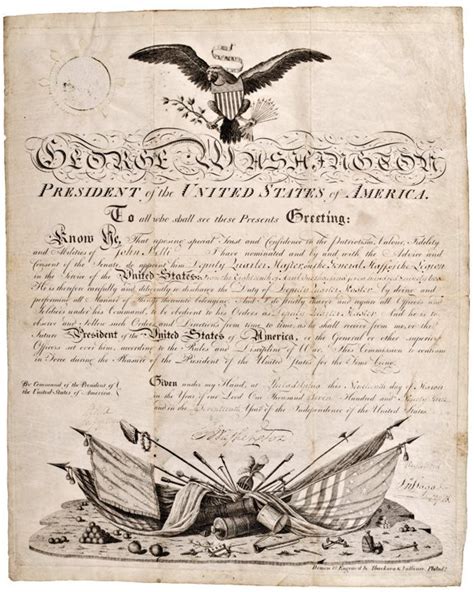 GEORGE WASHINGTON
PRESIDENT of the UNITED STATES of AMERICA.
To all who shall see these Presents Greeting:
Know Ye, That reposing special Trust and Confidence in the Patriotism, Valour, Fidelity
and Abilities of John I have nominated and by and with the Advice and
Consent of the Senate do appoint him Deputy Quarter Master
in the Service of the United States:
He is therefore carefully and diligently to discharge the Duty of Deputy Quarter Master by doing and
performing all Manner of Things thereunto belonging. And I do strictly charge and require all Officers and
Soldiers under his Command, to be obedient to his Orders as Deputy Quarter Master. And he is to
observe and follow such Orders and Directions from time to time, as he shall receive from me, or the
future President of the United States of America, or the General or other superior
Officers set over him, according to the Rules and Discipline of War. This Commission to continue
in Force during the Pleasure of the President of the United States for the Time being.
Given under my Hand, at Philadelphia this day of
in the Year of our Lord One Thousand Seven Hundred and Ninety
and in the Year of the Independence of the United States
By Command of the President of
the United States of America.
Drawn & Engraved by Thackara & Vallance Philada.